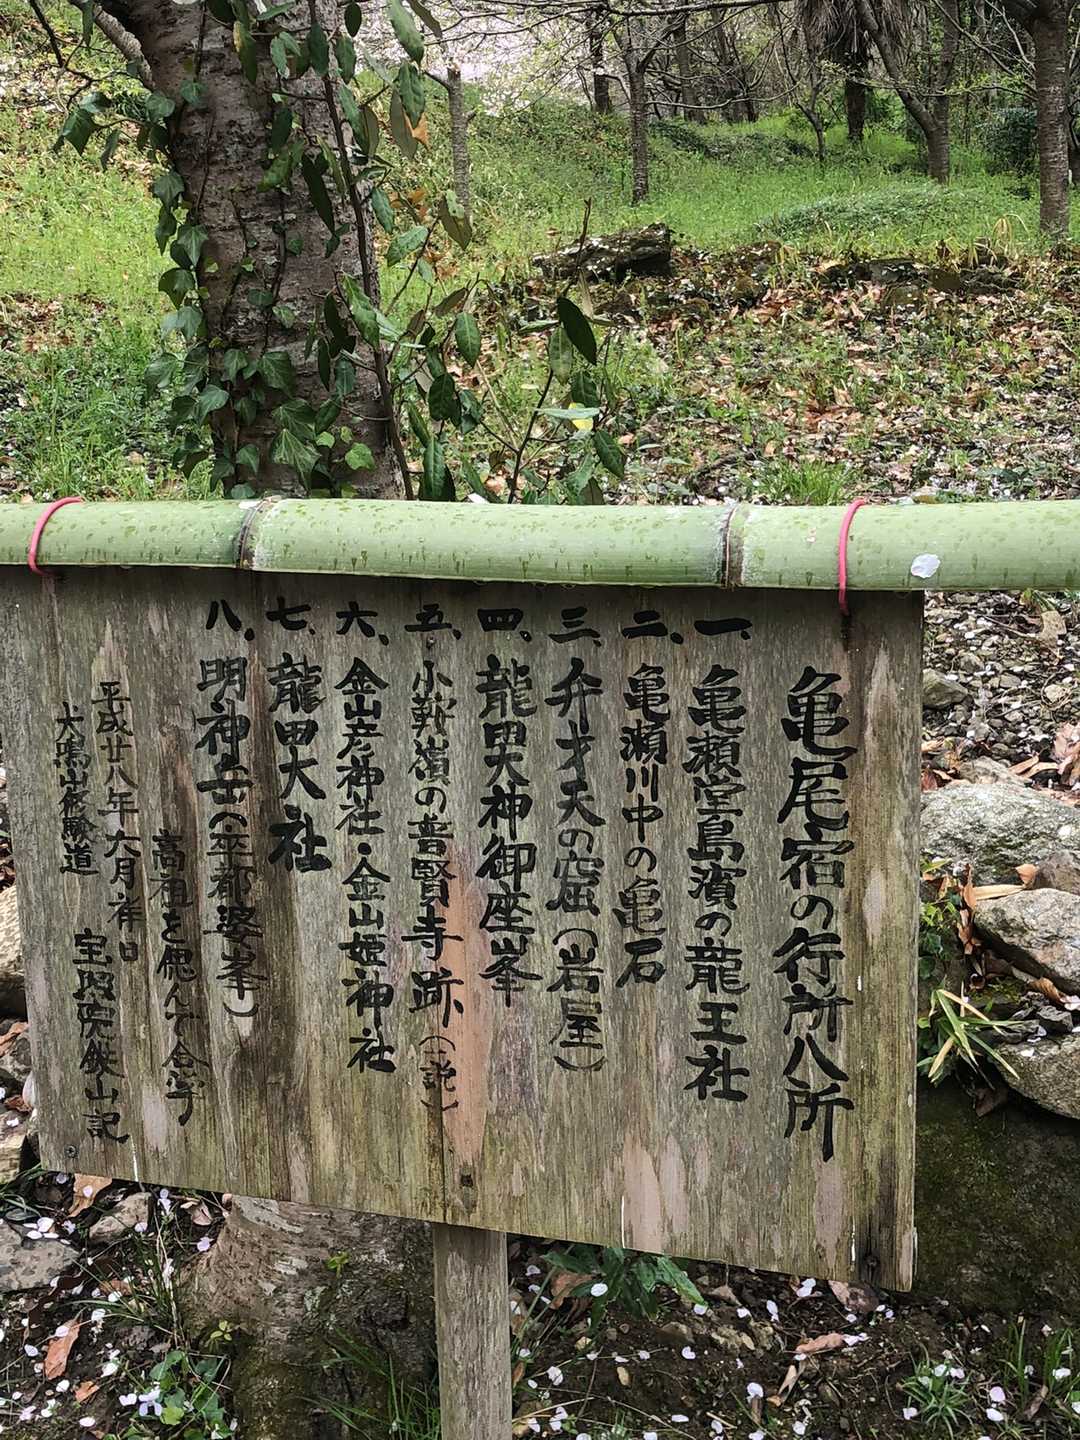 亀尾宿の行所八所
一、亀瀬堂島濱の龍王社
二、亀瀬川中の亀石
三、弁才天の窟（岩屋）
四、龍田大神御座峯
五、小鞍嶺の普賢寺跡（一説）
六、金山彦神社・金山姫神社
七、龍田大社
八、明神岳（卒都婆峯）
高祖を偲んで合掌
平成廿八年六月祥日
犬鳴山修験道 宝照院鉄山記